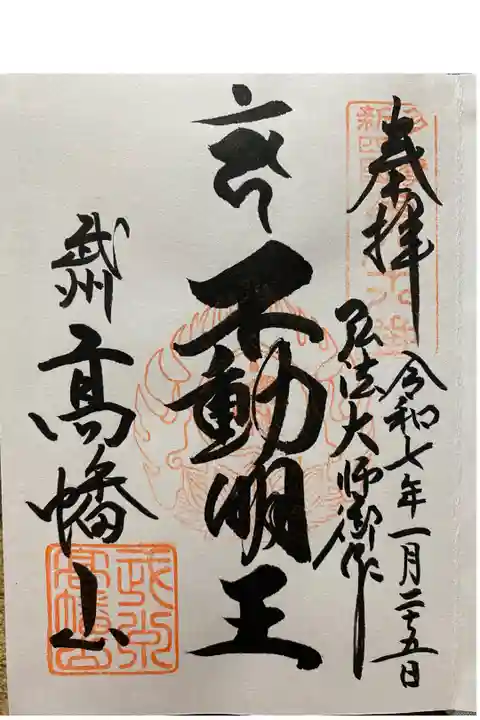 奉拝
令和七年一月二十五日
弘法大師御作
不動明王
武州
高幡山